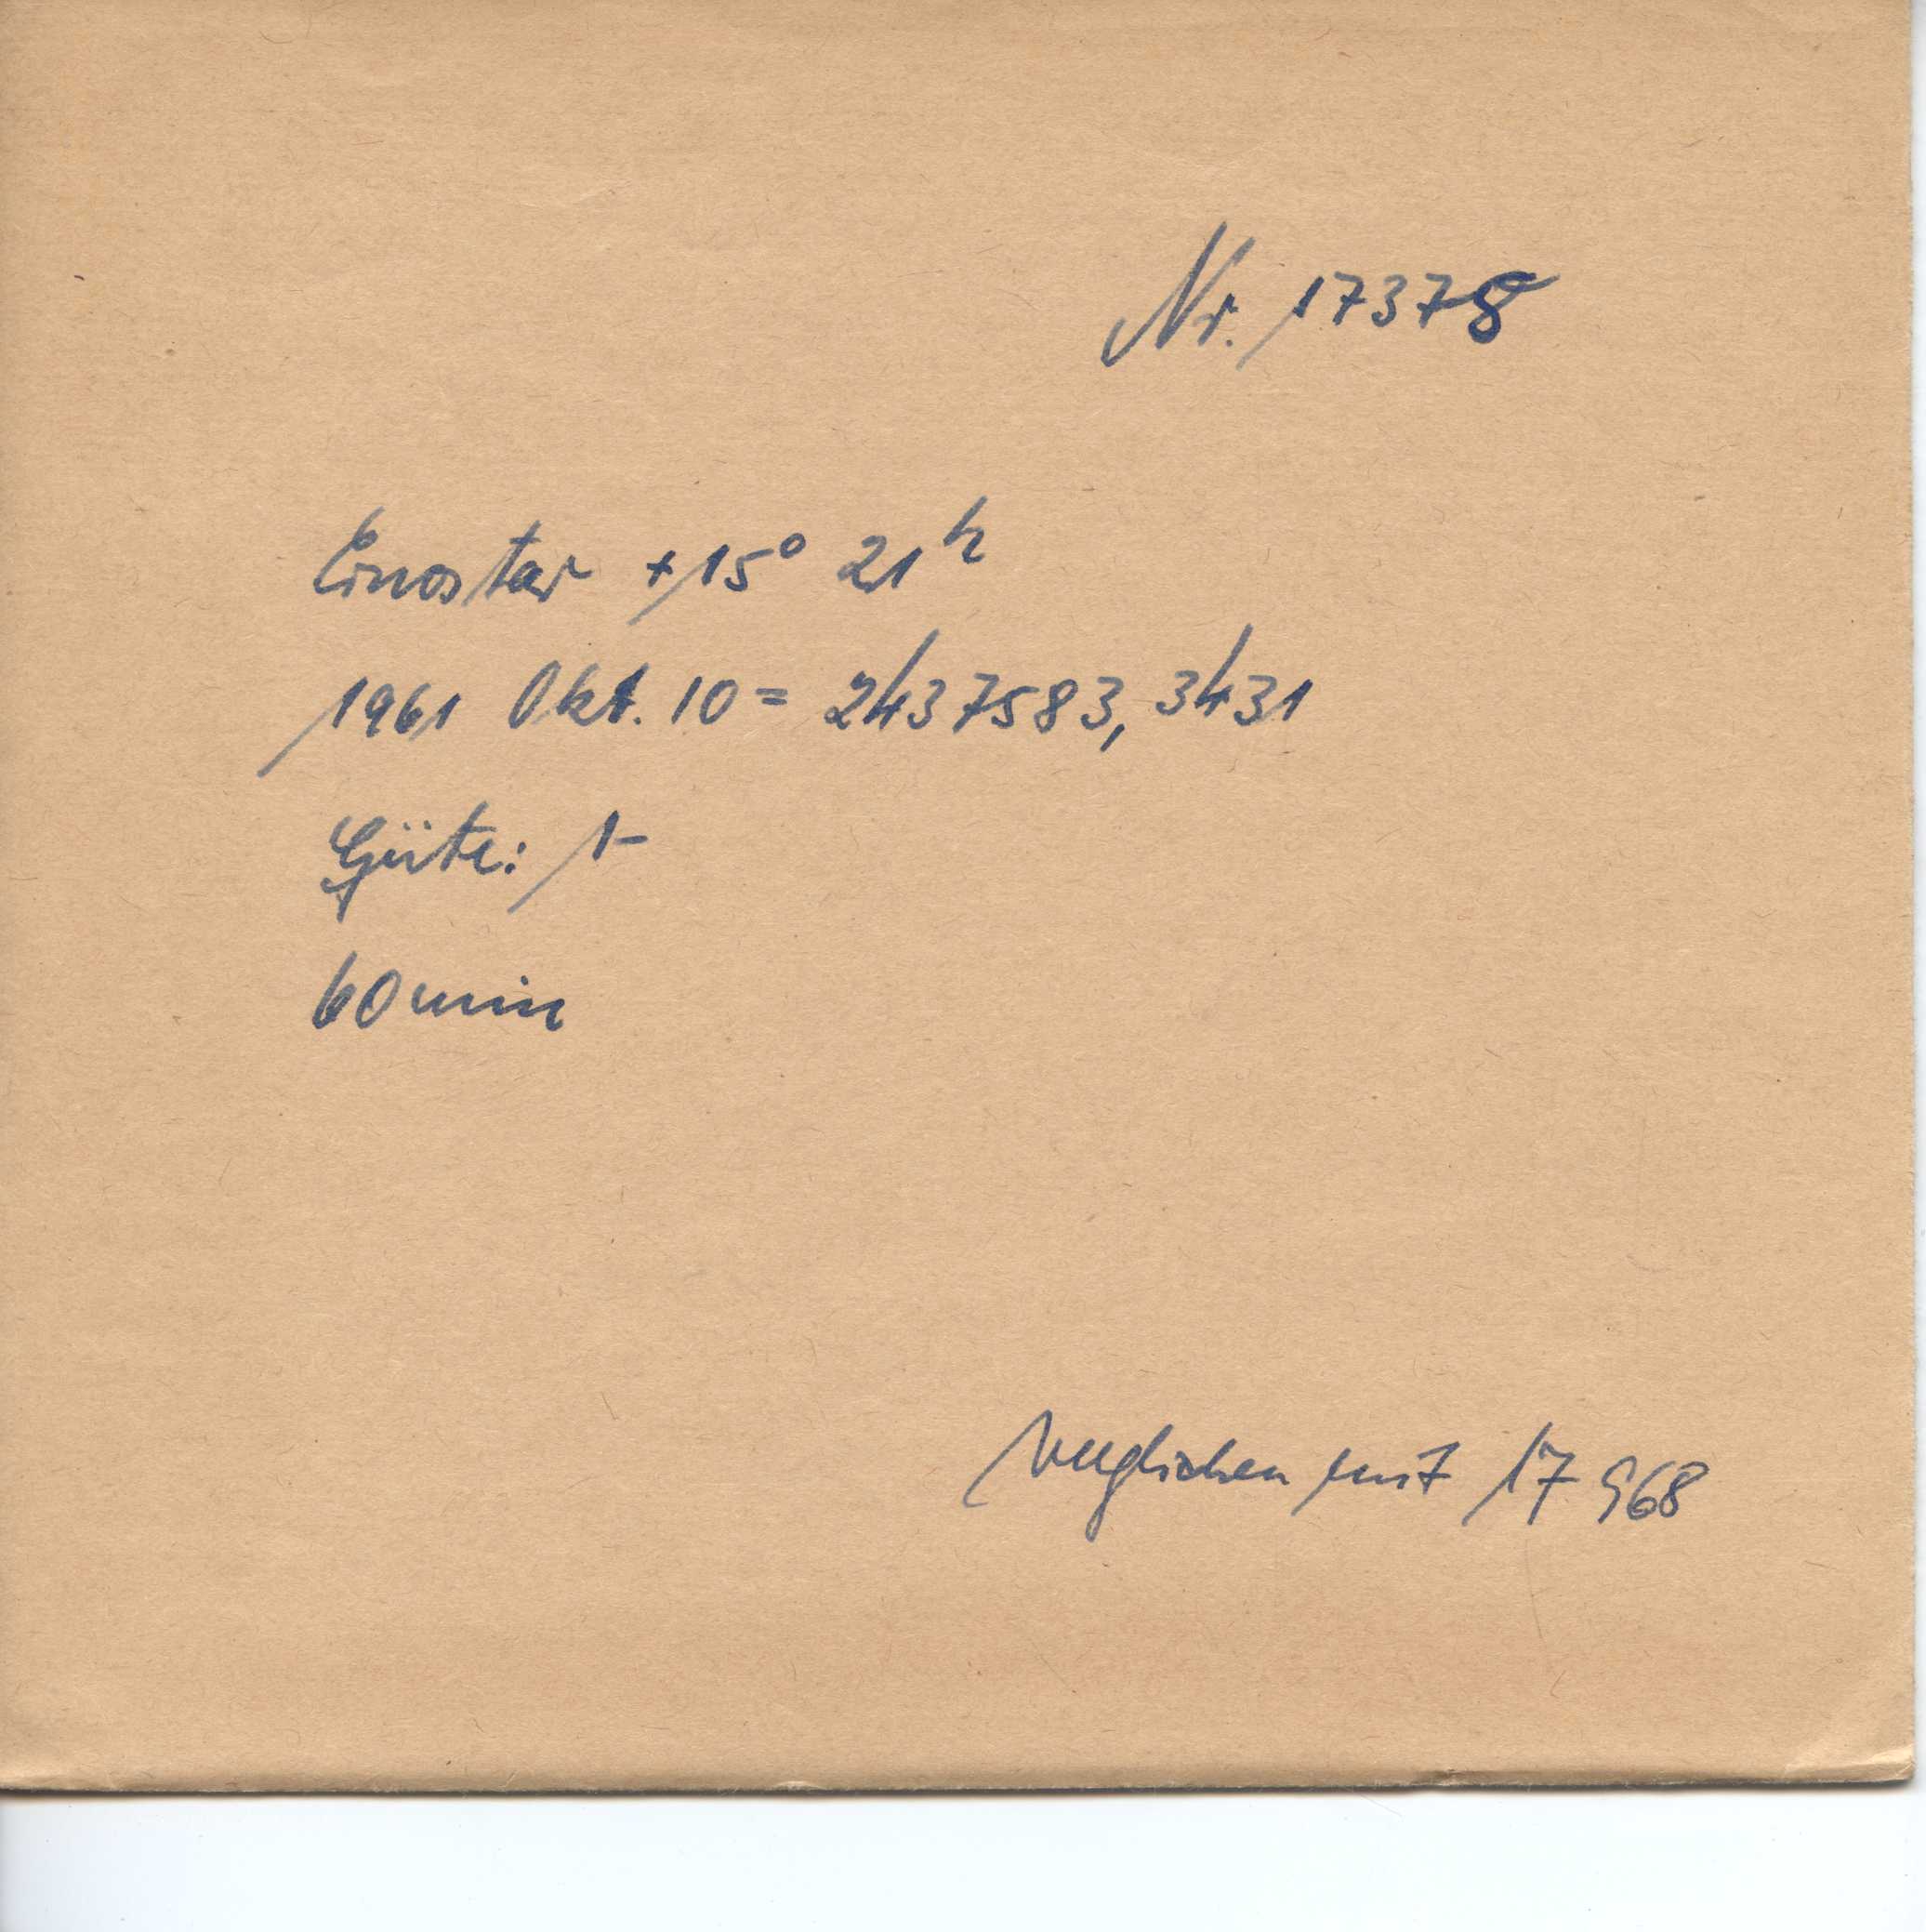 Nr. 17378
Ernostar +15° 21ʰ
1961 Okt. 10 = 2437583,3431
Güte: 1-
60 min
verglichen mit 17 968